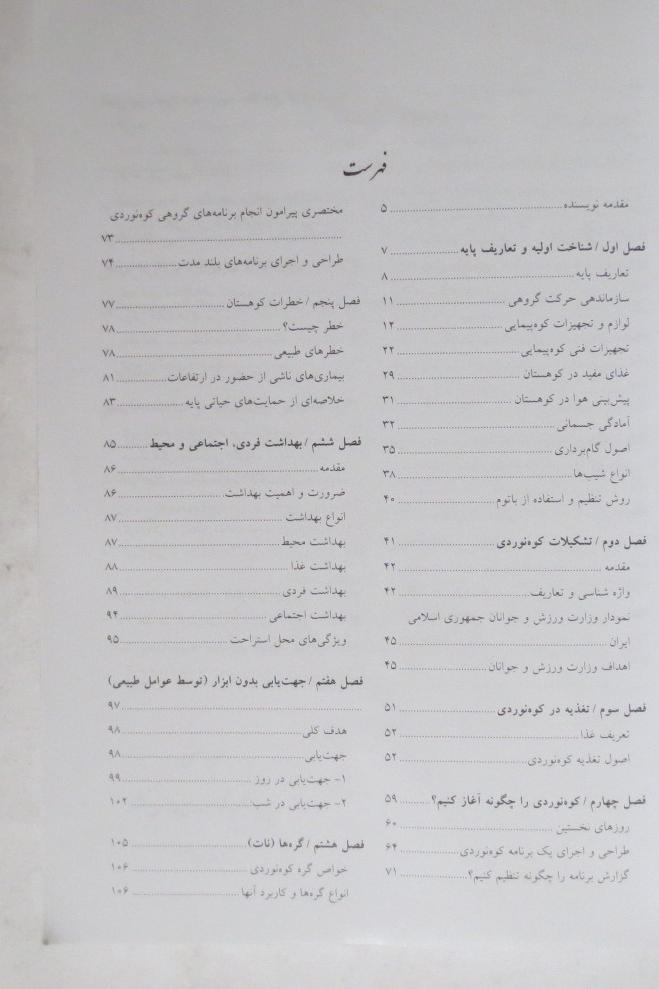 فهرست
مقدمه نویسنده ........ ۵
فصل اول / شناخت اولیه و تعاریف پایه ........ ۷
تعاریف پایه ........ ۸
سازماندهی حرکت گروهی ........ ۱۱
لوازم و تجهیزات کوه‌پیمایی ........ ۱۲
تجهیزات فنی کوه‌پیمایی ........ ۲۲
غذای مفید در کوهستان ........ ۲۹
پیش‌بینی هوا در کوهستان ........ ۳۱
آمادگی جسمانی ........ ۳۲
اصول گام‌برداری ........ ۳۵
انواع شیب‌ها ........ ۳۸
روش تنظیم و استفاده از باتوم ........ ۴۰
فصل دوم / تشکیلات کوه‌نوردی ........ ۴۱
مقدمه ........ ۴۲
واژه شناسی و تعاریف ........ ۴۲
نمودار وزارت ورزش و جوانان جمهوری اسلامی
ایران ........ ۴۵
اهداف وزارت ورزش و جوانان ........ ۴۵
فصل سوم / تغذیه در کوه‌نوردی ........ ۵۱
تعریف غذا ........ ۵۲
اصول تغذیه کوه‌نوردی ........ ۵۲
فصل چهارم / کوه‌نوردی را چگونه آغاز کنیم؟ ........ ۵۹
روزهای نخستین ........ ۶۰
طراحی و اجرای یک برنامه کوه‌نوردی ........ ۶۴
گزارش برنامه را چگونه تنظیم کنیم؟ ........ ۷۱
مختصری پیرامون انجام برنامه‌های گروهی کوه‌نوردی
........ ۷۳
طراحی و اجرای برنامه‌های بلند مدت ........ ۷۴
فصل پنجم / خطرات کوهستان ........ ۷۷
خطر چیست؟ ........ ۷۸
خطرهای طبیعی ........ ۷۸
بیماری‌های ناشی از حضور در ارتفاعات ........ ۸۱
خلاصه‌ای از حمایت‌های حیاتی پایه ........ ۸۳
فصل ششم / بهداشت فردی، اجتماعی و محیط ........ ۸۵
مقدمه ........ ۸۶
ضرورت و اهمیت بهداشت ........ ۸۶
انواع بهداشت ........ ۸۷
بهداشت محیط ........ ۸۷
بهداشت غذا ........ ۸۸
بهداشت فردی ........ ۸۹
بهداشت اجتماعی ........ ۹۴
ویژگی‌های محل استراحت ........ ۹۵
فصل هفتم / جهت‌یابی بدون ابزار (توسط عوامل طبیعی)
........ ۹۷
هدف کلی ........ ۹۸
جهت‌یابی ........ ۹۸
۱- جهت‌یابی در روز ........ ۹۹
۲- جهت‌یابی در شب ........ ۱۰۲
فصل هشتم / گره‌ها (نات) ........ ۱۰۵
خواص گره کوه‌نوردی ........ ۱۰۶
انواع گره‌ها و کاربرد آنها ........ ۱۰۶